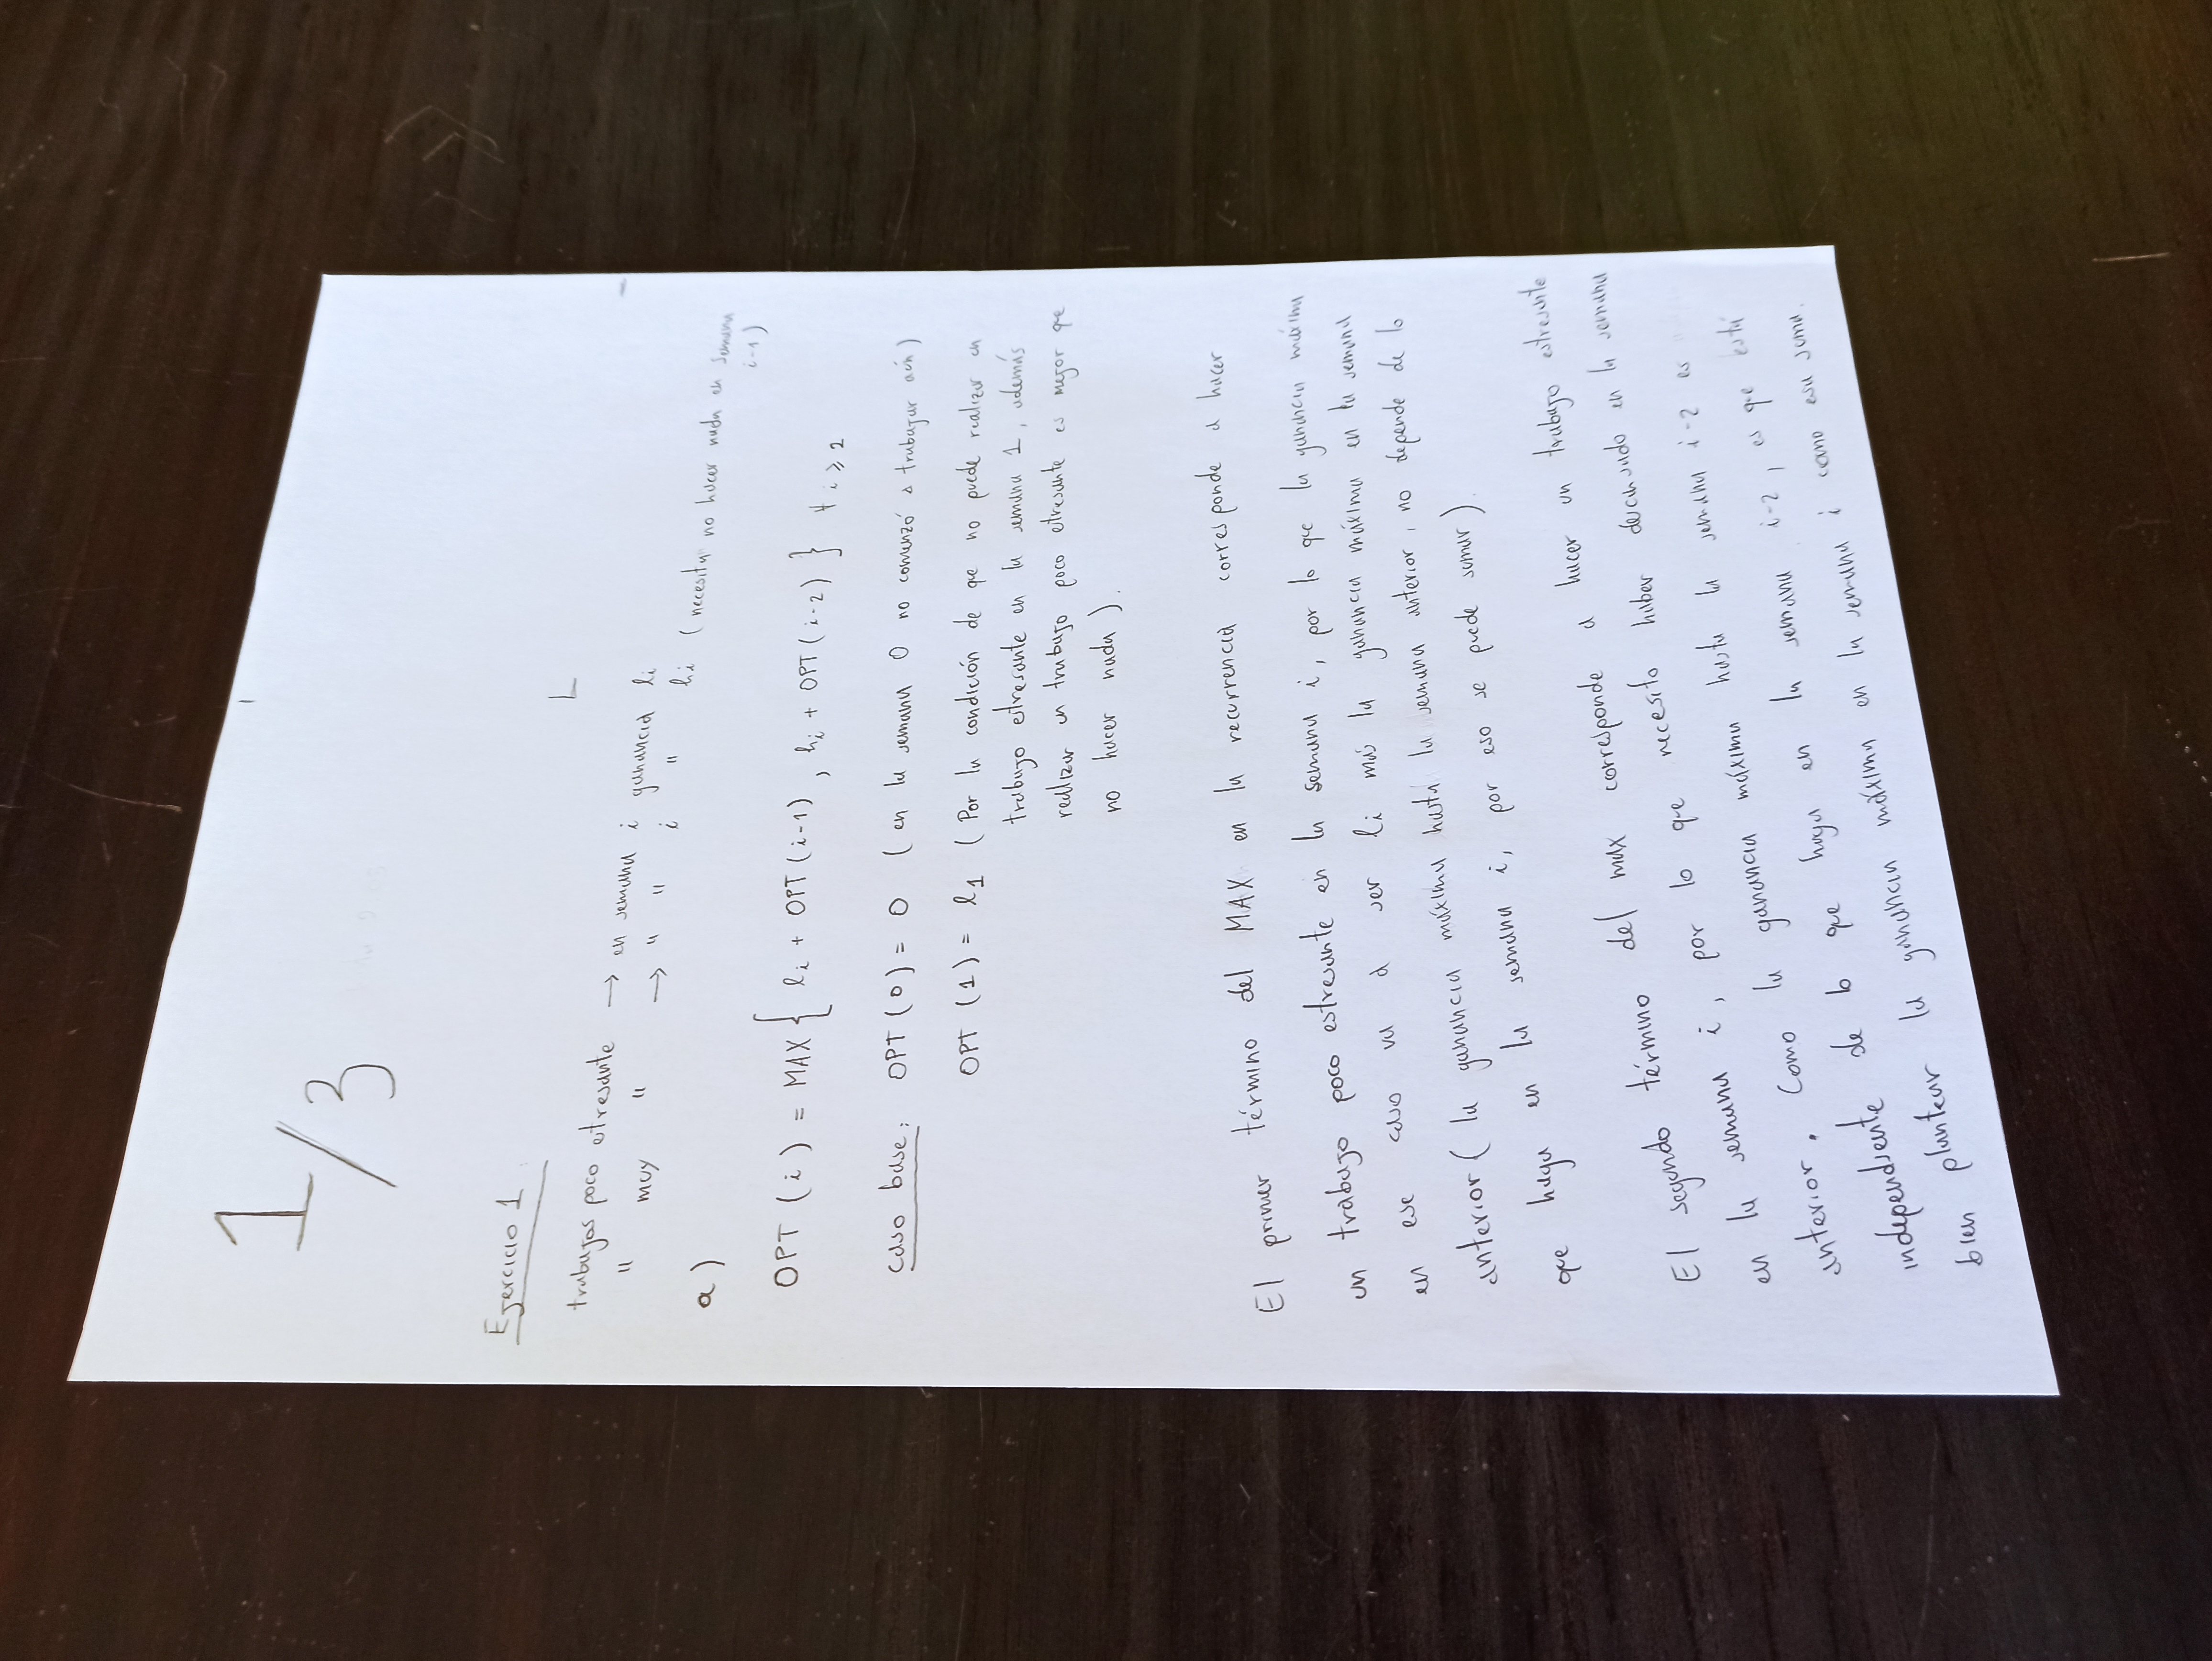 1/3
Ejercicio 1:
trabajos poco estresante → en semana i ganancia li
" muy " → " " i " hi (necesita no hacer nada en semana i-1)
a)
OPT (i) = MAX { li + OPT (i-1) , hi + OPT (i-2) } ∀ i ≥ 2
caso base: OPT (0) = 0 (en la semana 0 no comenzó a trabajar aún)
OPT (1) = l1 (Por la condición de que no puede realizar un
trabajo etresante en la semana 1, además
realizar un trabajo poco etresante es mejor que
no hacer nada).
El primer término del MAX en la recurrencia corresponde a hacer
un trabajo poco estresante en la semana i, por lo que la ganancia máxima
en ese caso va a ser li más la ganancia máxima en la semana
anterior (la ganancia máxima hasta la semana anterior, no depende de lo
que haga en la semana i, por eso se puede sumar).
El segundo término del max corresponde a hacer un trabajo estresante
en la semana i, por lo que necesito haber descansado en la semana
anterior. Como la ganancia máxima hasta la semana i-2 es
independiente de lo que haga en la semana i-2, es que está
bien plantear la ganancia máxima en la semana i como esa suma.